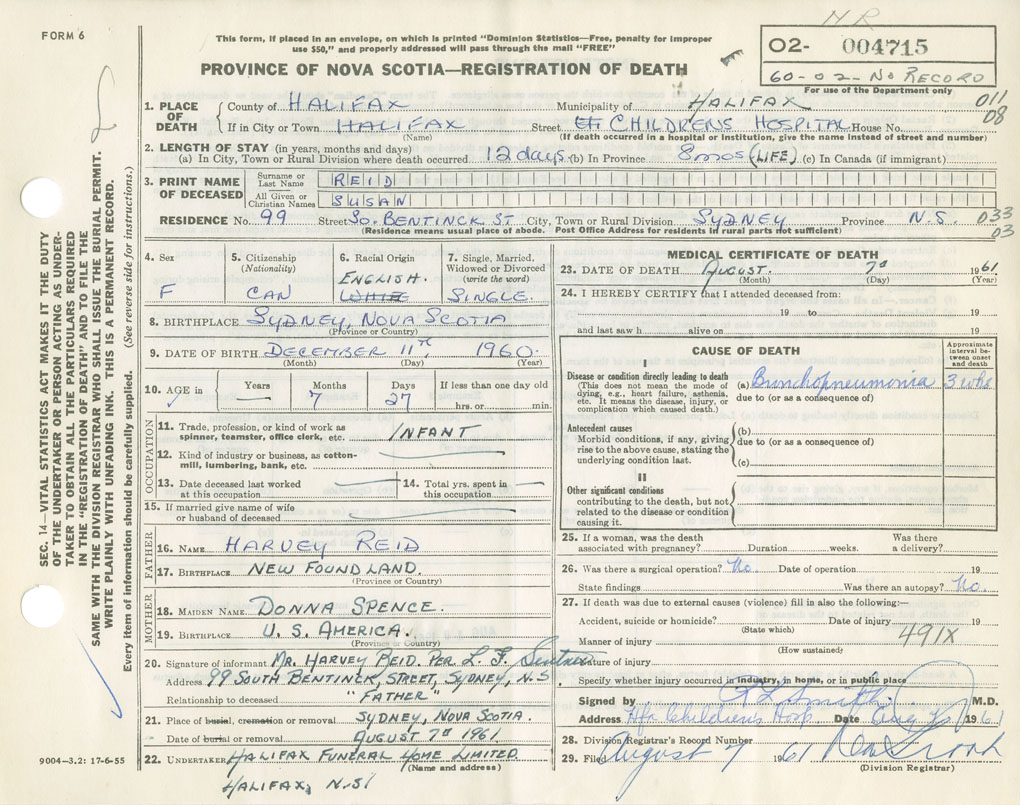 N R
FORM 6
This form, if placed in an envelope, on which is printed "Dominion Statistics—Free, penalty for improper
use $50," and properly addressed will pass through the mail "FREE"
O2- 004715
60-02-NO RECORD
For use of the Department only
PROVINCE OF NOVA SCOTIA—REGISTRATION OF DEATH
011
08
1. PLACE OF DEATH County of HALIFAX Municipality of HALIFAX
If in City or Town HALIFAX Street CHILDRENS HOSPITAL House No.
(Name) (If death occurred in a hospital or institution, give the name instead of street and number)
2. LENGTH OF STAY (in years, months and days)
(a) In City, Town or Rural Division where death occurred 12 days (b) In Province 8 mos (LIFE) (c) In Canada (if immigrant)
3. PRINT NAME OF DECEASED Surname or Last Name REID
All Given or Christian Names SUSAN
RESIDENCE No. 99 Street So. BENTINCK ST City, Town or Rural Division SYDNEY Province N.S. 033
03
(Residence means usual place of abode. Post Office Address for residents in rural parts not sufficient)
4. Sex F
5. Citizenship (Nationality) CAN
6. Racial Origin ENGLISH. WHITE
7. Single, Married, Widowed or Divorced (write the word) SINGLE.
8. BIRTHPLACE SYDNEY, NOVA SCOTIA
(Province or Country)
9. DATE OF BIRTH DECEMBER 11TH 1960.
(Month) (Day) (Year)
10. AGE in Years Months 7 Days 27 If less than one day old
hrs. or min.
OCCUPATION
11. Trade, profession, or kind of work as
spinner, teamster, office clerk, etc. INFANT
12. Kind of industry or business, as cotton-
mill, lumbering, bank, etc.
13. Date deceased last worked
at this occupation
14. Total yrs. spent in
this occupation
15. If married give name of wife
or husband of deceased
FATHER
16. NAME HARVEY REID
17. BIRTHPLACE NEW FOUNDLAND.
(Province or Country)
MOTHER
18. MAIDEN NAME DONNA SPENCE.
19. BIRTHPLACE U.S. AMERICA.
(Province or Country)
20. Signature of informant MR. HARVEY REID. PER L. F.
Address 99 SOUTH BENTINCK, STREET, SYDNEY, N.S.
Relationship to deceased "FATHER"
21. Place of burial, cremation or removal SYDNEY, NOVA SCOTIA.
Date of burial or removal AUGUST 7th 1961
22. UNDERTAKER HALIFAX FUNERAL HOME LIMITED.
(Name and address)
HALIFAX, N.S.
MEDICAL CERTIFICATE OF DEATH
23. DATE OF DEATH AUGUST. 7th 1961
(Month) (Day) (Year)
24. I HEREBY CERTIFY that I attended deceased from:
19 to 19
and last saw h alive on 19
CAUSE OF DEATH
Approximate interval between onset and death
I
Disease or condition directly leading to death
(This does not mean the mode of
dying, e.g., heart failure, asthenia,
etc. It means the disease, injury, or
complication which caused death.)
(a) Bronchopneumonia 3 wks
due to (or as a consequence of)
Antecedent causes
Morbid conditions, if any, giving
rise to the above cause, stating the
underlying condition last.
(b)
due to (or as a consequence of)
(c)
II
Other significant conditions
contributing to the death, but not
related to the disease or condition
causing it.
25. If a woman, was the death
associated with pregnancy? Duration weeks. Was there
a delivery?
26. Was there a surgical operation? No. Date of operation 19
State findings Was there an autopsy? No.
27. If death was due to external causes (violence) fill in also the following:—
Accident, suicide or homicide? Date of injury 19
(State which)
Manner of injury 491X
(How sustained)
Nature of injury
Specify whether injury occurred in industry, in home, or in public place
Signed by Smith M.D.
Address Hfx Childrens Hosp Date Aug 7 1961
28. Division Registrar's Record Number
29. Filed August 7 1961
(Division Registrar)
9004-3.2: 17-6-55
SEC. 14—VITAL STATISTICS ACT MAKES IT THE DUTY
OF THE UNDERTAKER OR PERSON ACTING AS UNDER-
TAKER TO OBTAIN ALL THE PARTICULARS REQUIRED
IN THE "REGISTRATION OF DEATH" AND TO FILE THE
SAME WITH THE DIVISION REGISTRAR WHO SHALL ISSUE THE BURIAL PERMIT.
WRITE PLAINLY WITH UNFADING INK. THIS IS A PERMANENT RECORD.
Every item of information should be carefully supplied. (See reverse side for instructions.)